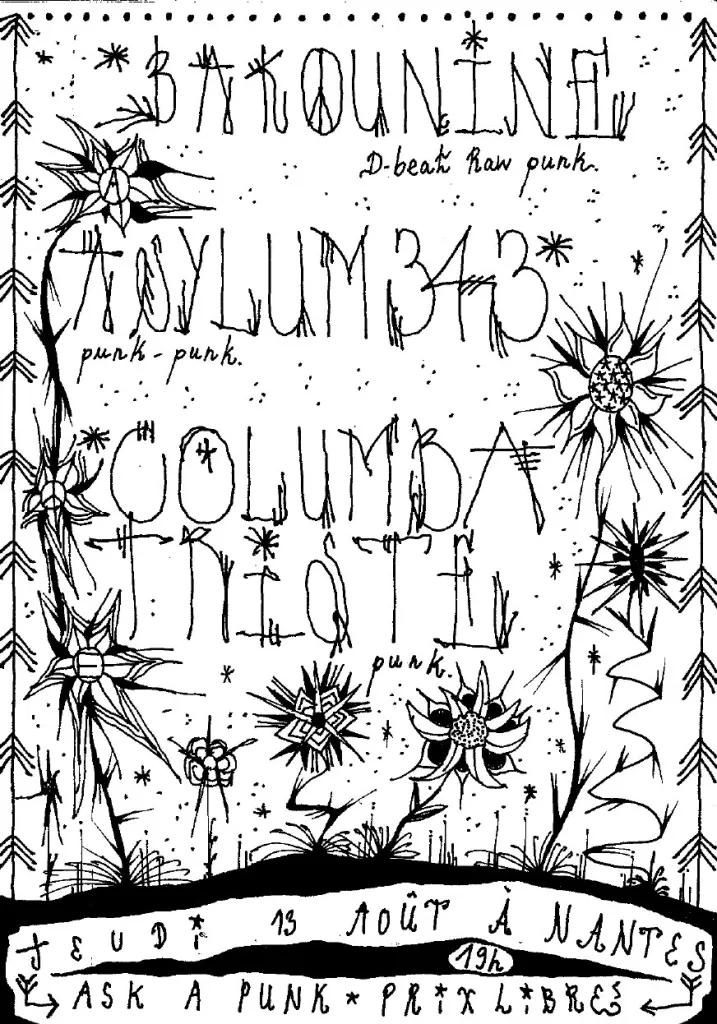 BAKOUNINE
D-beat Raw punk.
ASYLUM 343
punk-punk.
COLUMBA
TRISTE
punk.
JEUDI 13 AOÛT À NANTES
19h
ASK A PUNK * PRIX LIBRES